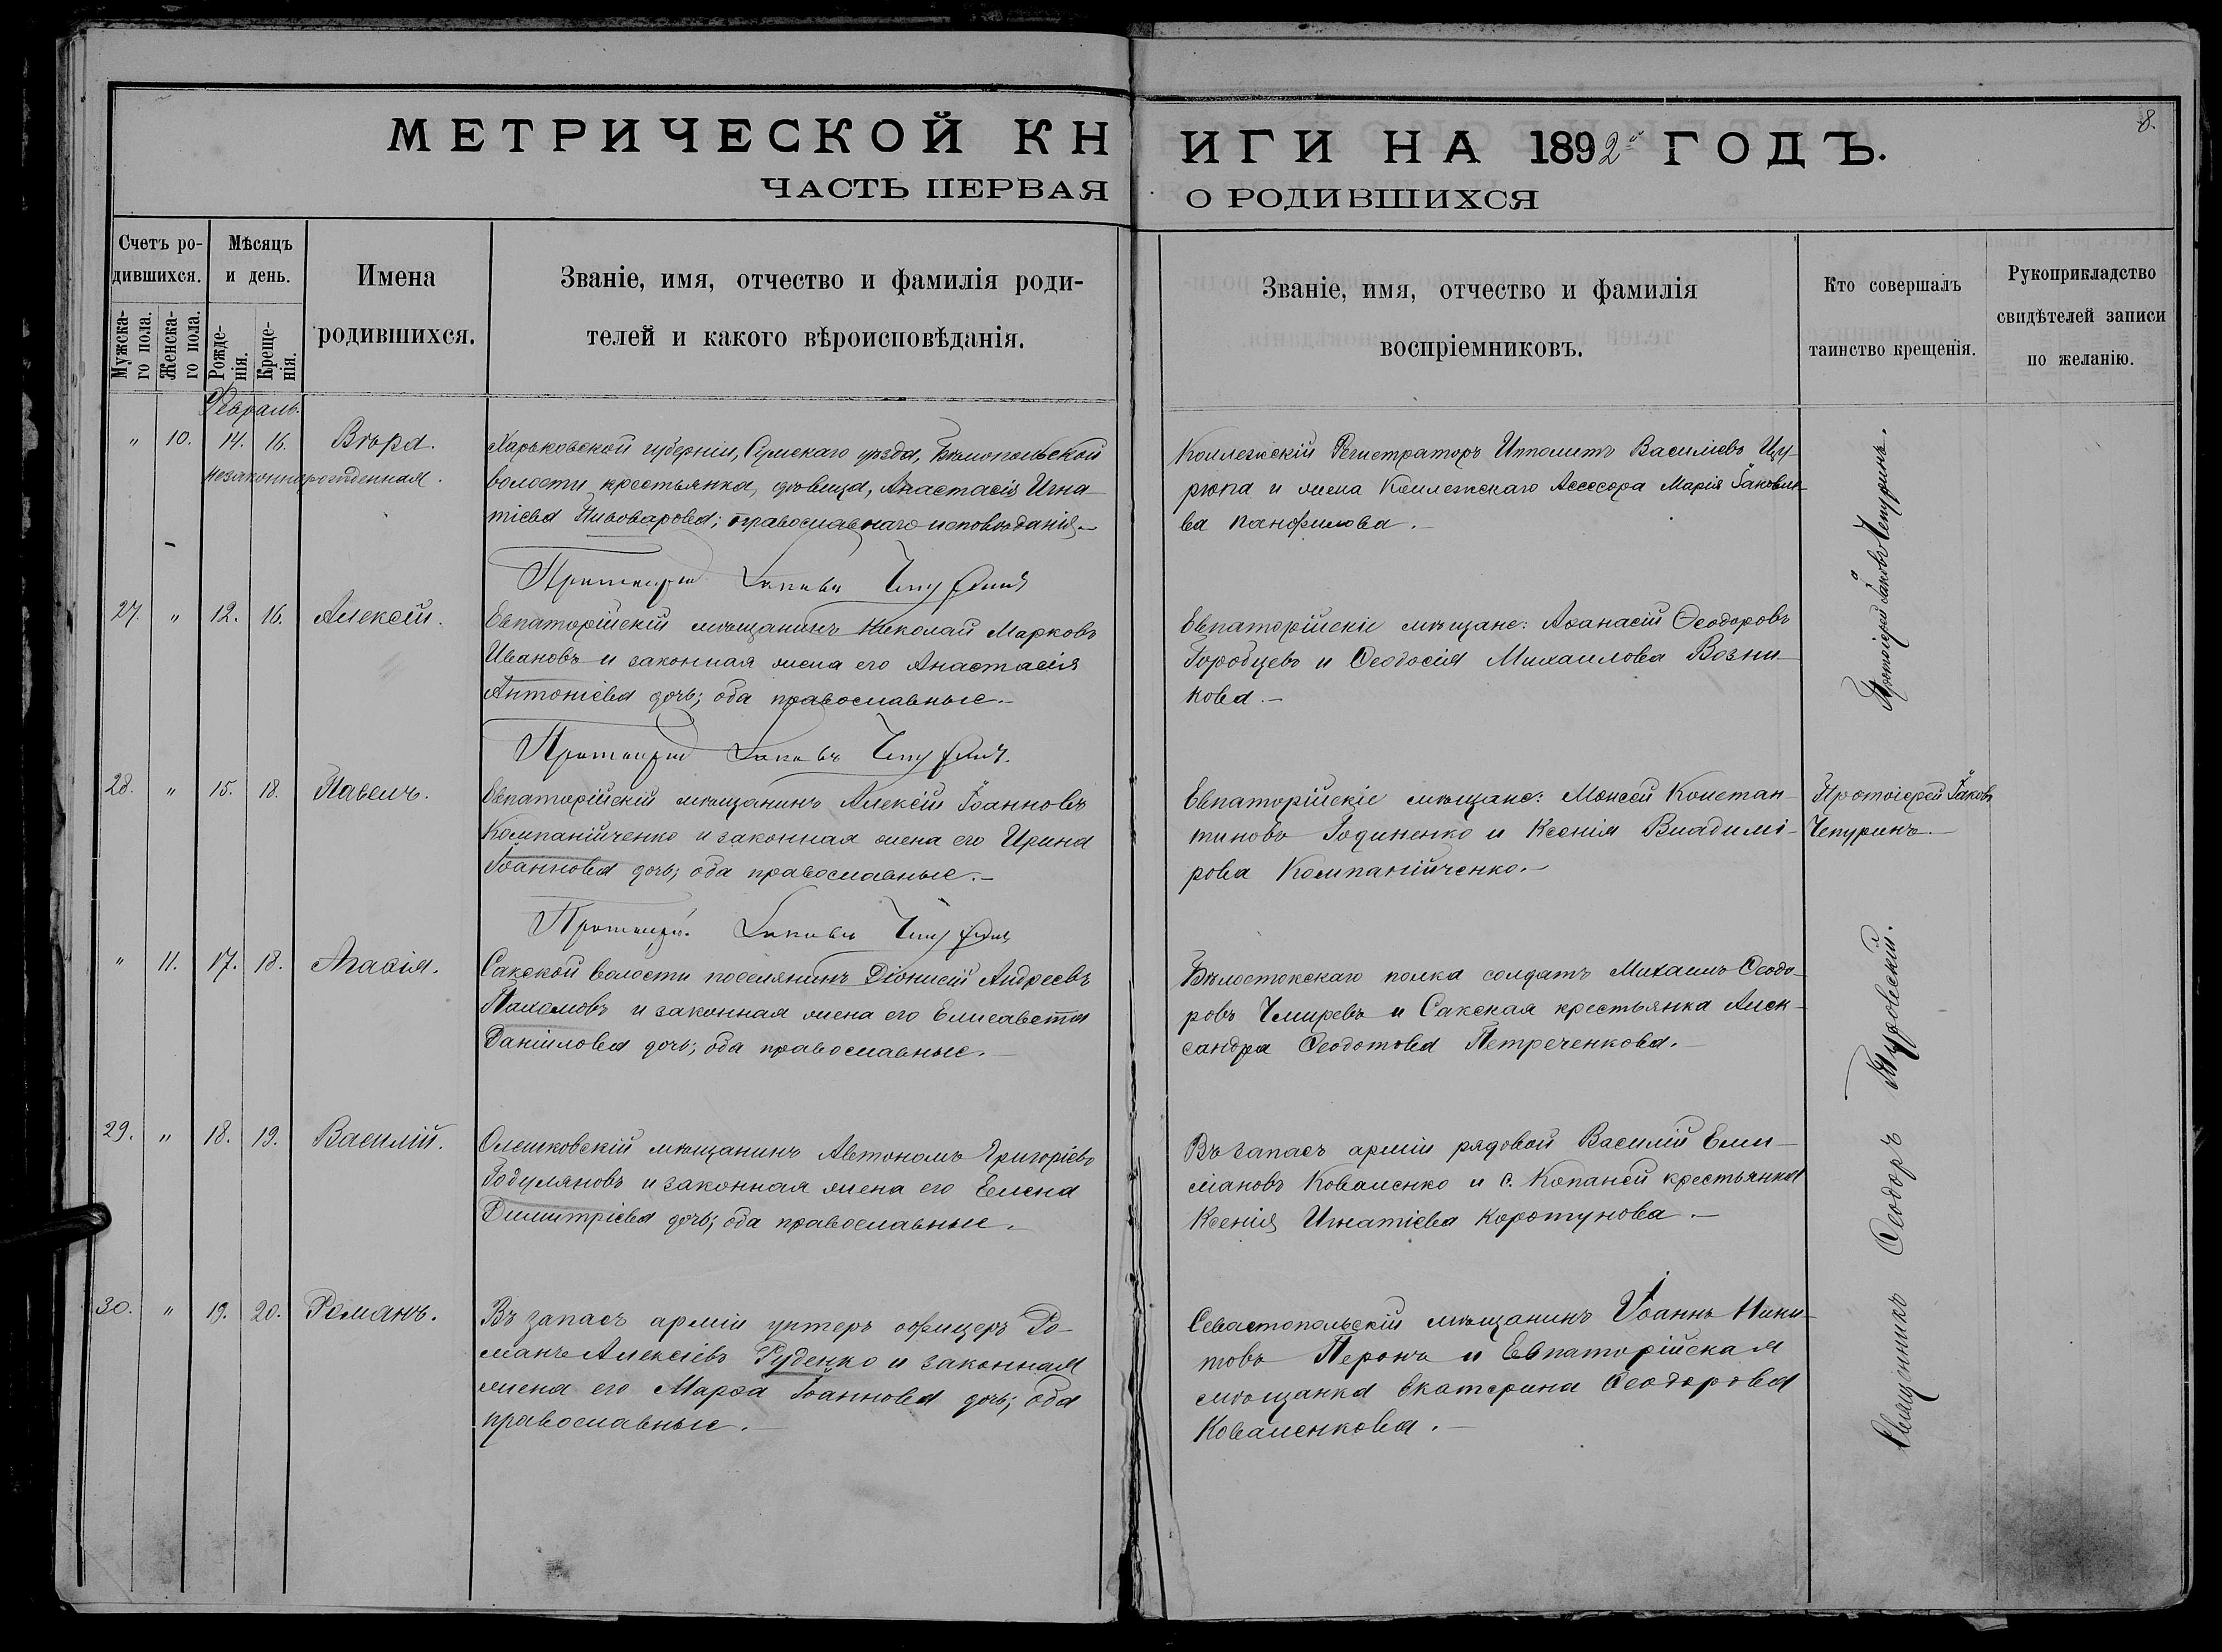 МЕТРИЧЕСКОЙ КНИГИ НА 1892й ГОДЪ.
8.
ЧАСТЬ ПЕРВАЯ О РОДИВШИХСЯ
Счетъ ро-
дившихся.
Мужска-
го пола.
Женска-
го пола.
Мѣсяцъ
и день.
Рожде-
нія.
Креще-
нія.
Имена
родившихся.
Званіе, имя, отчество и фамилія роди-
телей и какого вѣроисповѣданія.
Званіе, имя, отчество и фамилія
воспріемниковъ.
Кто совершалъ
таинство крещенія.
Рукоприкладство
свидѣтелей записи
по желанію.
Февраль.
" 10. 14. 16. Вѣра.
незаконнорожденная.
Харьковской губерніи, Сумскаго уѣзда, Бѣлопольской
волости крестьянка, дѣвица, Анастасія Игна-
тіева Пивоварова; православнаго исповѣданія.—
Протоіерей Іаковъ Чепуринъ
Коллежскій Регистраторъ Ипполитъ Василіевъ Цу-
рюпа и жена Коллежскаго Ассесора Марія Іаковле-
ва Панфилова.—
Протоіерей Іаковъ Чепуринъ.
27. " 12. 16. Алексѣй.
Евпаторійскій мѣщанинъ Николай Марковъ
Ивановъ и законная жена его Анастасія
Антоніева дочь; оба православные.—
Протоіерей Іаковъ Чепуринъ.
Евпаторійскіе мѣщане: Аѳанасій Ѳеодоровъ
Горобцевъ и Ѳеодосія Михаилова Возни-
кова.—
28. " 15. 18. Павелъ.
Евпаторійскій мѣщанинъ Алексій Іоанновъ
Компанійченко и законная жена его Ирина
Іоаннова дочь; оба православные.—
Протоіерей Іаковъ Чепуринъ
Евпаторійскіе мѣщане: Моисей Констан-
тиновъ Годиненко и Ксенія Владимі-
рова Компанійченко.—
Протоіерей Іаковъ
Чепуринъ.—
" 11. 17. 18. Агаѳія.
Сакской волости поселянинъ Діонисій Андреевъ
Пахомовъ и законная жена его Елисавета
Даніилова дочь; оба православные.—
Бѣлостокскаго полка солдатъ Михаилъ Ѳеодо-
ровъ Чмыревъ и Сакская крестьянка Алек-
сандра Ѳеодотова Петреченкова.—
Священникъ Ѳеодоръ Туровскій.
29. " 18. 19. Василій.
Олешковскій мѣщанинъ Автономъ Григоріевъ
Годуляновъ и законная жена его Елена
Димитріева дочь; оба православные.—
Въ запасѣ арміи рядовой Василій Еми-
ліановъ Коваленко и с. Копаней крестьянка
Ксенія Игнатіева Коротунова.—
30. " 19. 20. Романъ.
Въ запасѣ арміи унтеръ офицеръ Ро-
манъ Алексіевъ Руденко и законная
жена его Марѳа Іоаннова дочь; оба
православные.—
Севастопольскій мѣщанинъ Іоаннъ Ники-
товъ Перонъ и Евпаторійская
мѣщанка Екатерина Ѳеодорова
Коваленкова.—